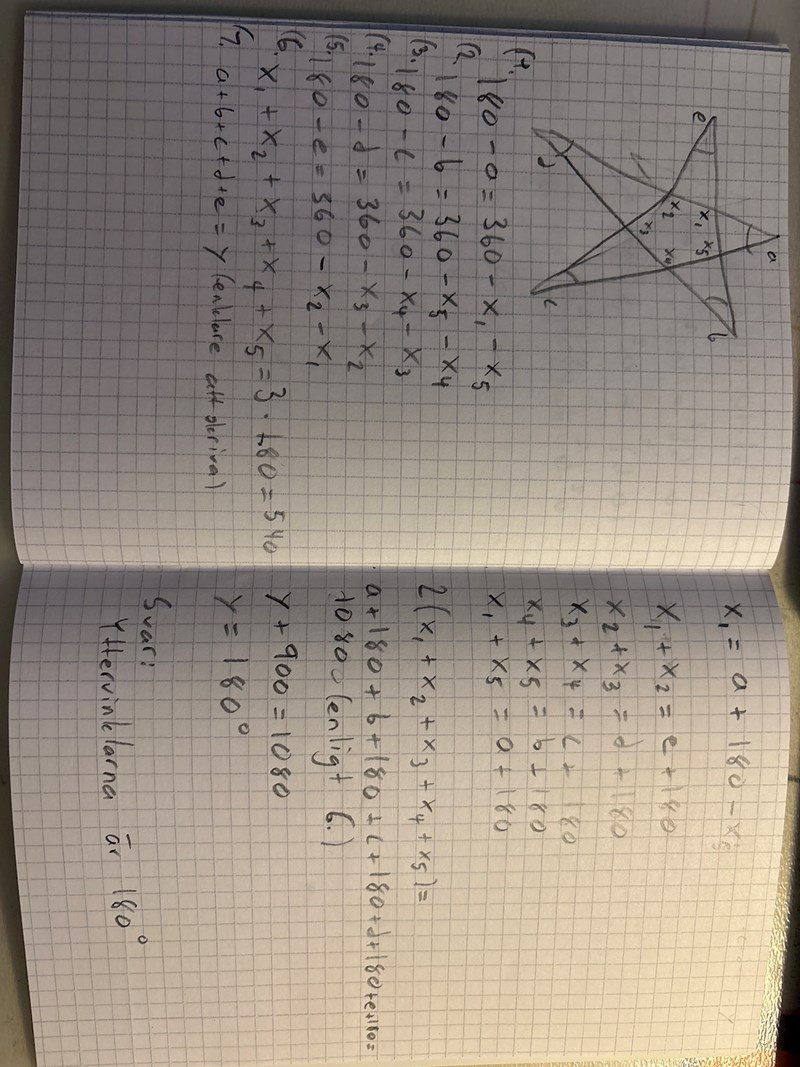 a
e
b
x₁
x₅
x₂
x₄
x₃
d
c
(1. 180 - a = 360 - x₁ - x₅
(2. 180 - b = 360 - x₅ - x₄
(3. 180 - c = 360 - x₄ - x₃
(4. 180 - d = 360 - x₃ - x₂
(5. 180 - e = 360 - x₂ - x₁
(6. x₁ + x₂ + x₃ + x₄ + x₅ = 3 · 180 = 540
(7. a+b+c+d+e = y (enklare att skriva)
x₁ = a + 180 - x₅
x₁ + x₂ = e + 180
x₂ + x₃ = d + 180
x₃ + x₄ = c + 180
x₄ + x₅ = b + 180
x₁ + x₅ = a + 180
2(x₁ + x₂ + x₃ + x₄ + x₅) =
a + 180 + b + 180 + c + 180 + d + 180 + e + 180 =
1080 (enligt 6.)
y + 900 = 1080
y = 180°
Svar:
Yttervinklarna är 180°